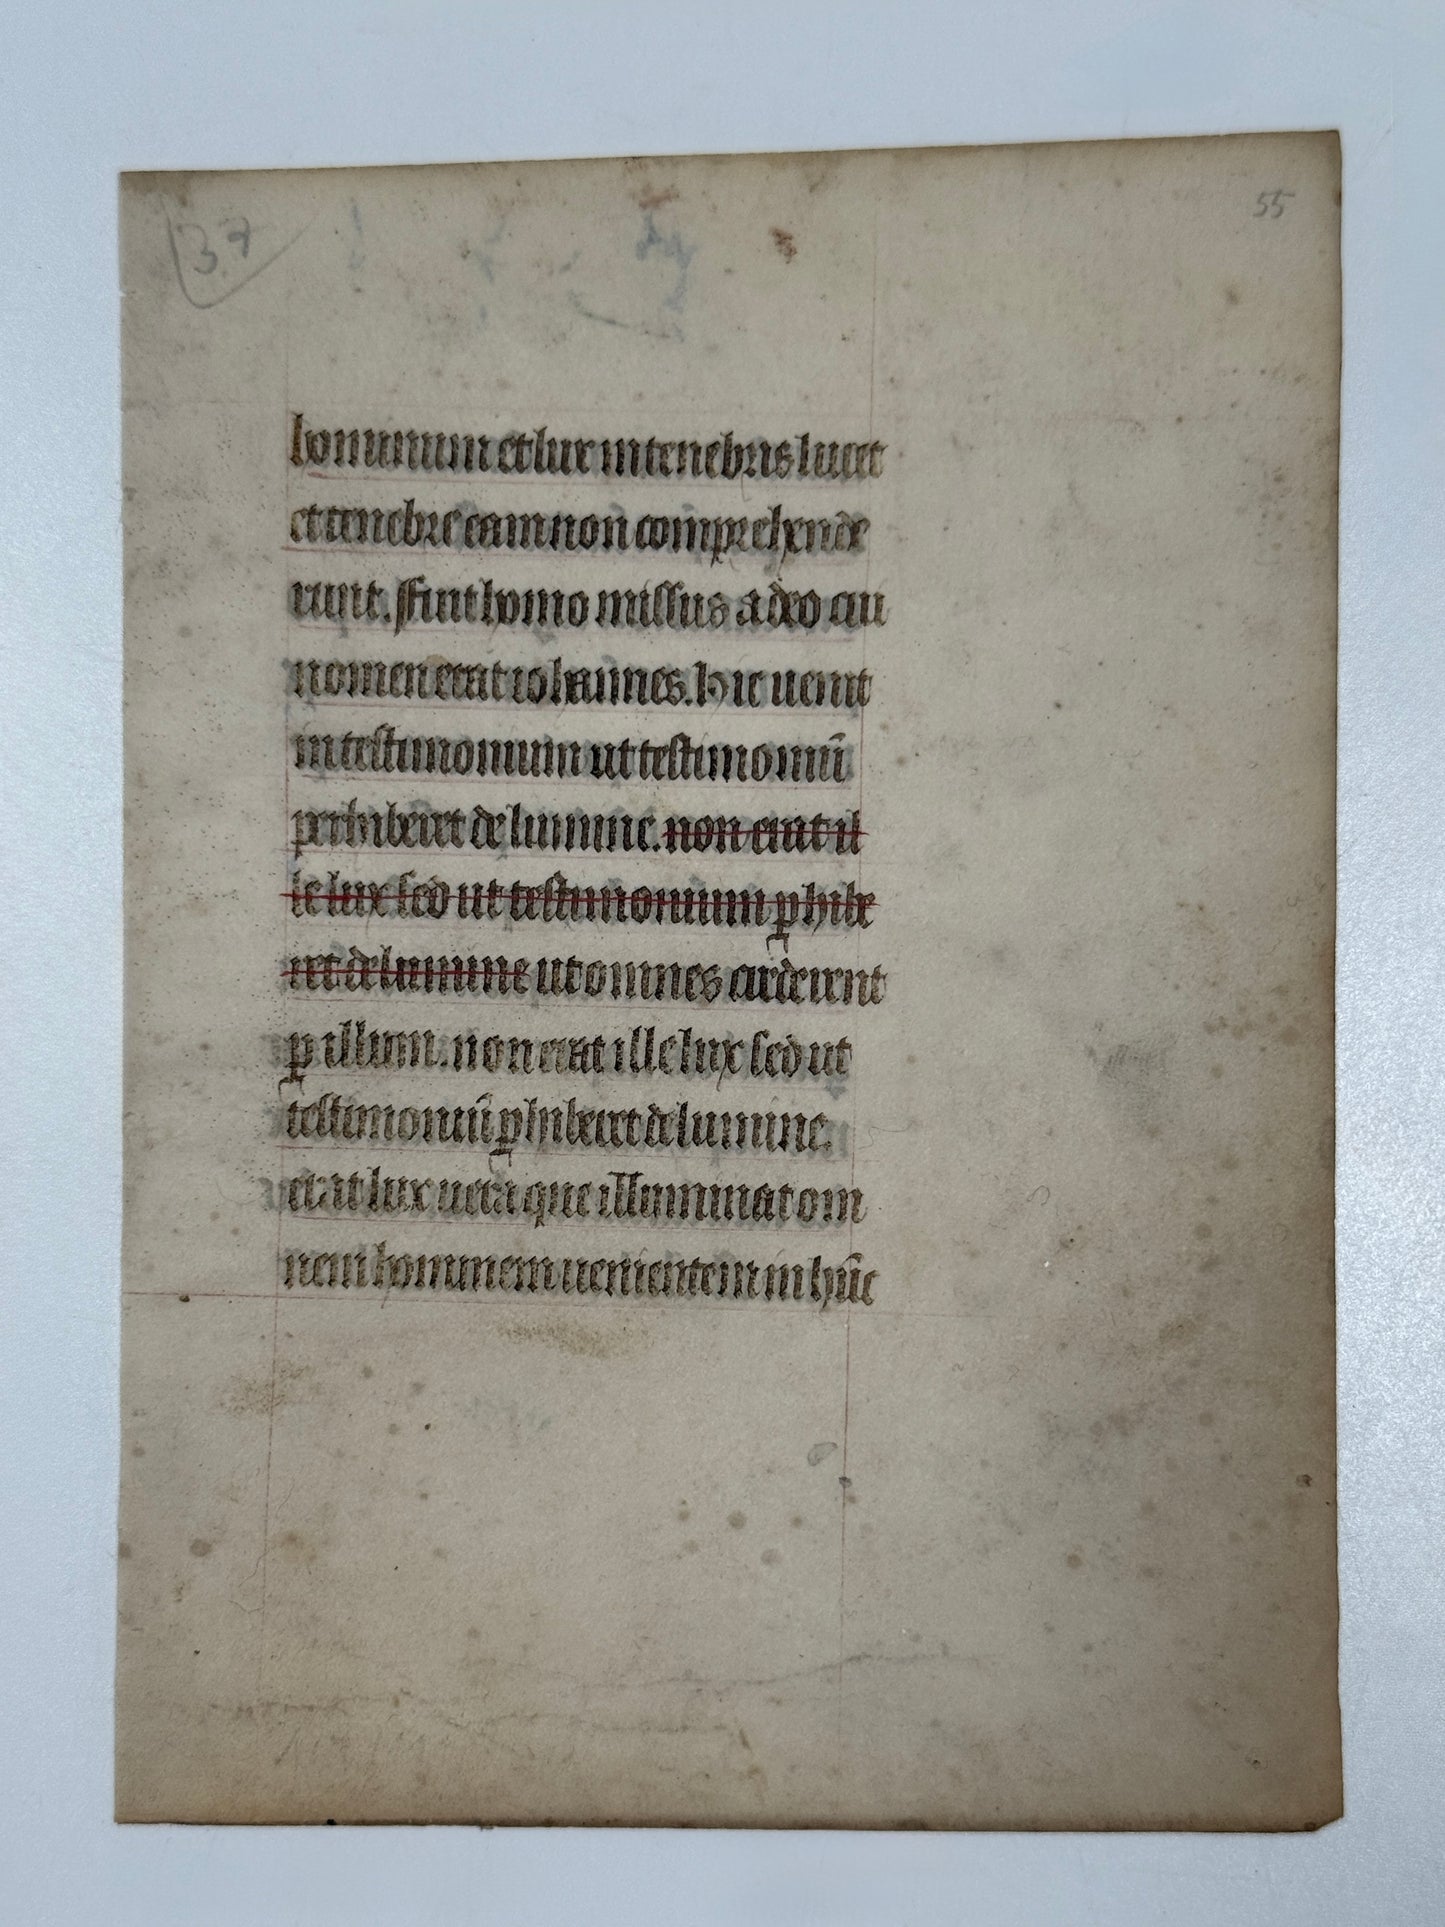 37
55
hominum et lux in tenebris lucet
et tenebre eam non comprehende
runt. ffuit homo missus a deo cui
nomen erat iohannes. Hic uenit
in testimonium ut testimoniū
perhiberet de lumine. non erat il
le lux sed ut testimonium ꝑhibe
ret de lumine ut omnes crederent
ꝑ illum. non erat ille lux sed ut
testimoniū ꝑhiberet de lumine.
erat lux uera que illuminat om
nem hominem uenientem in hūc